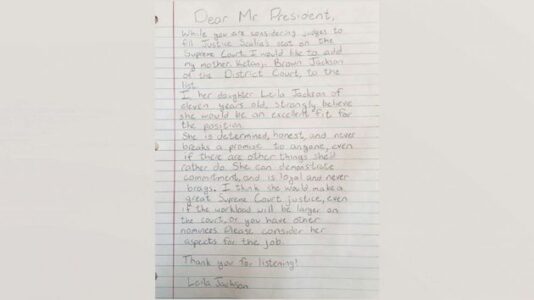 Dear Mr. President,
While you are considering judges to
fill Justice Scalia's seat on the
Supreme Court, I would like to add
my mother Ketanji Brown Jackson
of the District Court, to the
list.
I, her daughter Leila Jackson of
eleven years old, strongly believe
she would be an excellent fit for
the position.
She is determined, honest, and never
breaks a promise to anyone, even
if there are other things she'd
rather do. She can demonstrate
commitment, and is loyal and never
brags. I think she would make a
great Supreme Court justice, even
if the workload will be larger on
the court, or you have other
nominees. Please consider her
aspects for the job.
Thank you for listening!
Leila Jackson